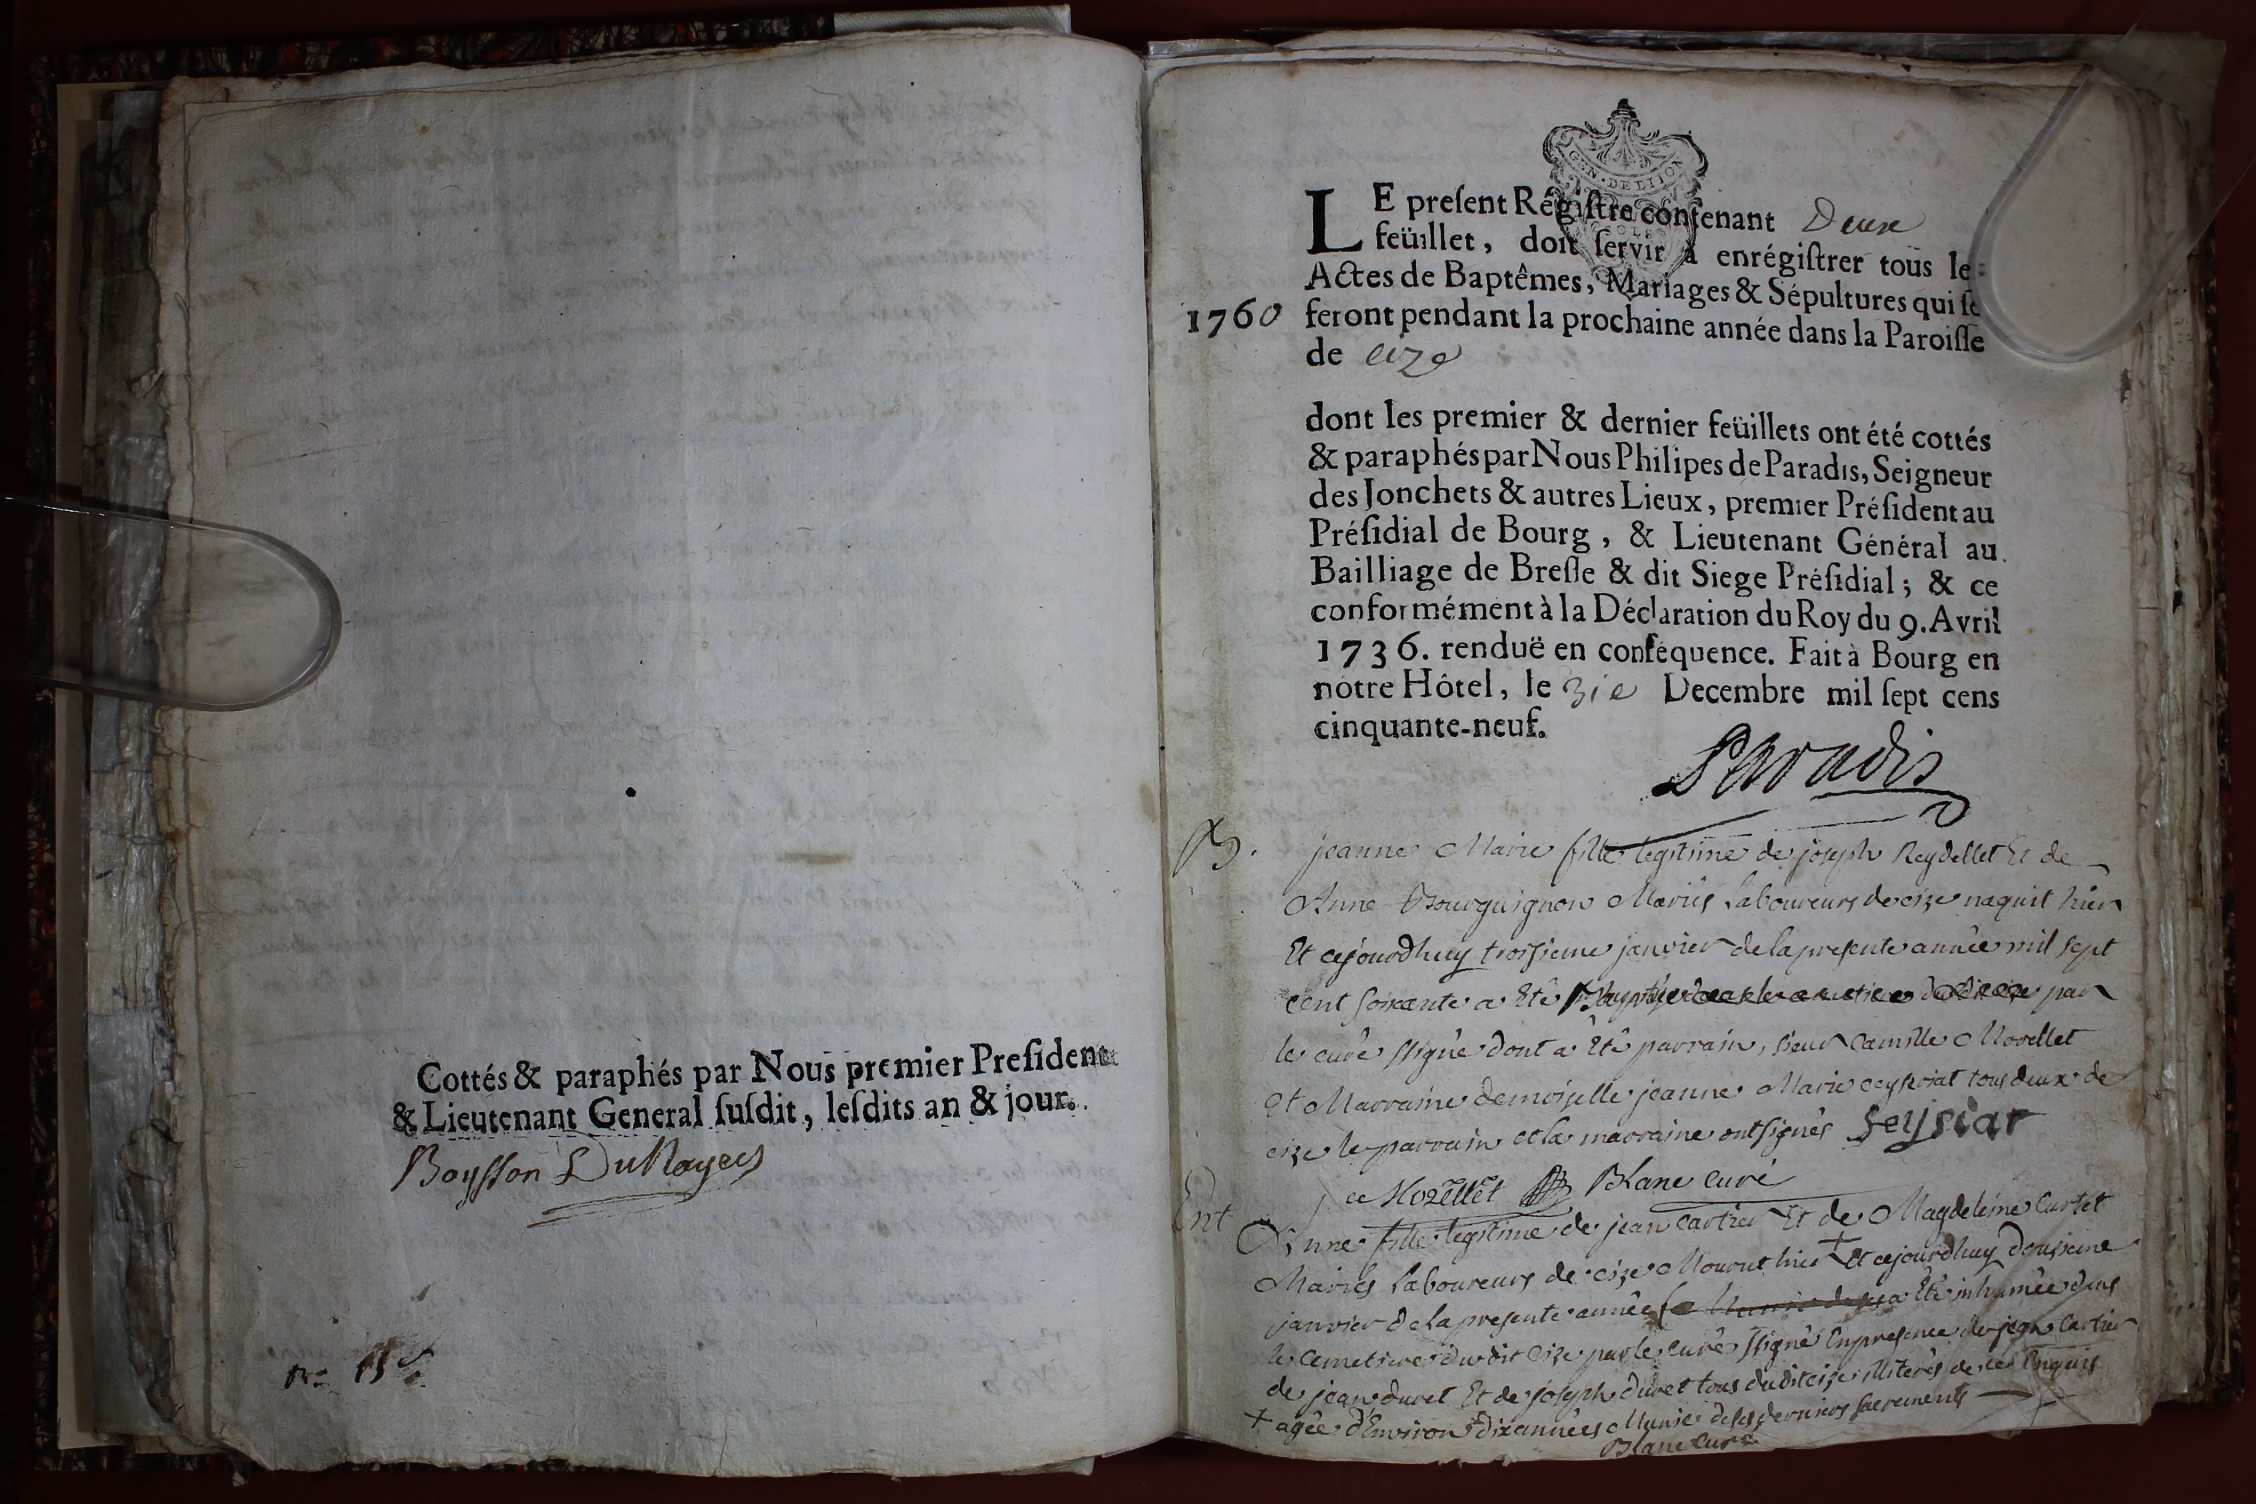 Cottés & paraphés par Nous premier Preſident
& Lieutenant General ſuſdit, leſdits an & jour.
Boysson DuNoyers
GEN · DE DIJON
LE preſent Régiſtre contenant Deux
feüillet, doit ſervir à enrégiſtrer tous le
Actes de Baptêmes, Mariages & Sépultures qui ſe
1760 feront pendant la prochaine année dans la Paroiſſe
de Cize
dont les premier & dernier feüillets ont été cottés
& paraphés par Nous Philipes de Paradis, Seigneur
des Jonchets & autres Lieux, premier Préſident au
Préſidial de Bourg, & Lieutenant Général au
Bailliage de Breſſe & dit Siege Préſidial; & ce
conformément à la Déclaration du Roy du 9. Avril
1736. renduë en conſéquence. Fait à Bourg en
nôtre Hôtel, le 31e Decembre mil ſept cens
cinquante-neuf.
Paradis
B. jeanne Marie fille legitime de joseph Reydellet Et de
Anne Bourguignon Mariés Laboureurs de cize naquit hier
Et cejourdhuy troisieme janvier de la presente année mil sept
cent soixante a Eté Baptisée par
le curé ssigné dont a Eté parrain, sieur camille Morellet
et Marraine demoiselle jeanne Marie ceyseriat tous deux de
cize le parrain et la marraine ont signés Seysiat
ce Mozellet Blanc curé
Ent Anne fille legitime de jean cartier Et de Magdeleine Curtet
Mariés Laboureurs de cize Mourut hier + Et cejourdhuy dousieme
janvier de la presente année a Eté inhumée dans
le cemetiere dudit cize par le curé ssigné En presence de jean cartier
de jean duret Et de joseph duret tous dudit cize illiterés de ce Enquis
+ agée d'Environ dix années Munie de ses derniers sacrements
Blanc curé